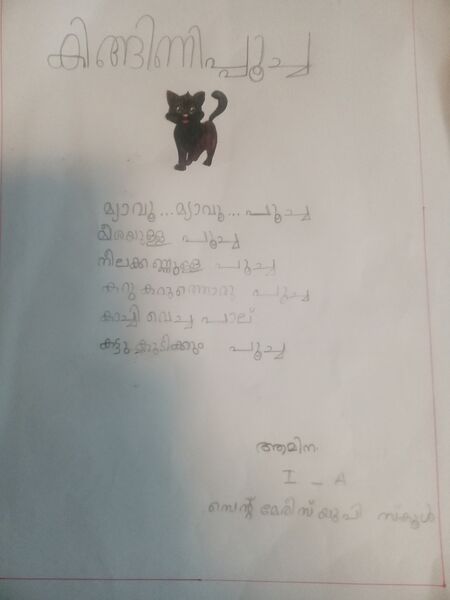 കിങ്ങിണിപ്പൂച്ച
മ്യാവൂ...മ്യാവൂ... പൂച്ച
മീശയുള്ള പൂച്ച
നീലക്കണ്ണുള്ള പൂച്ച
കറു കറുത്തൊരു പൂച്ച
കാച്ചി വെച്ച പാല്
കട്ടു കുടിക്കും പൂച്ച
ആമിന
I - A
സെന്റ് മേരിസ് യുപി സ്കൂൾ